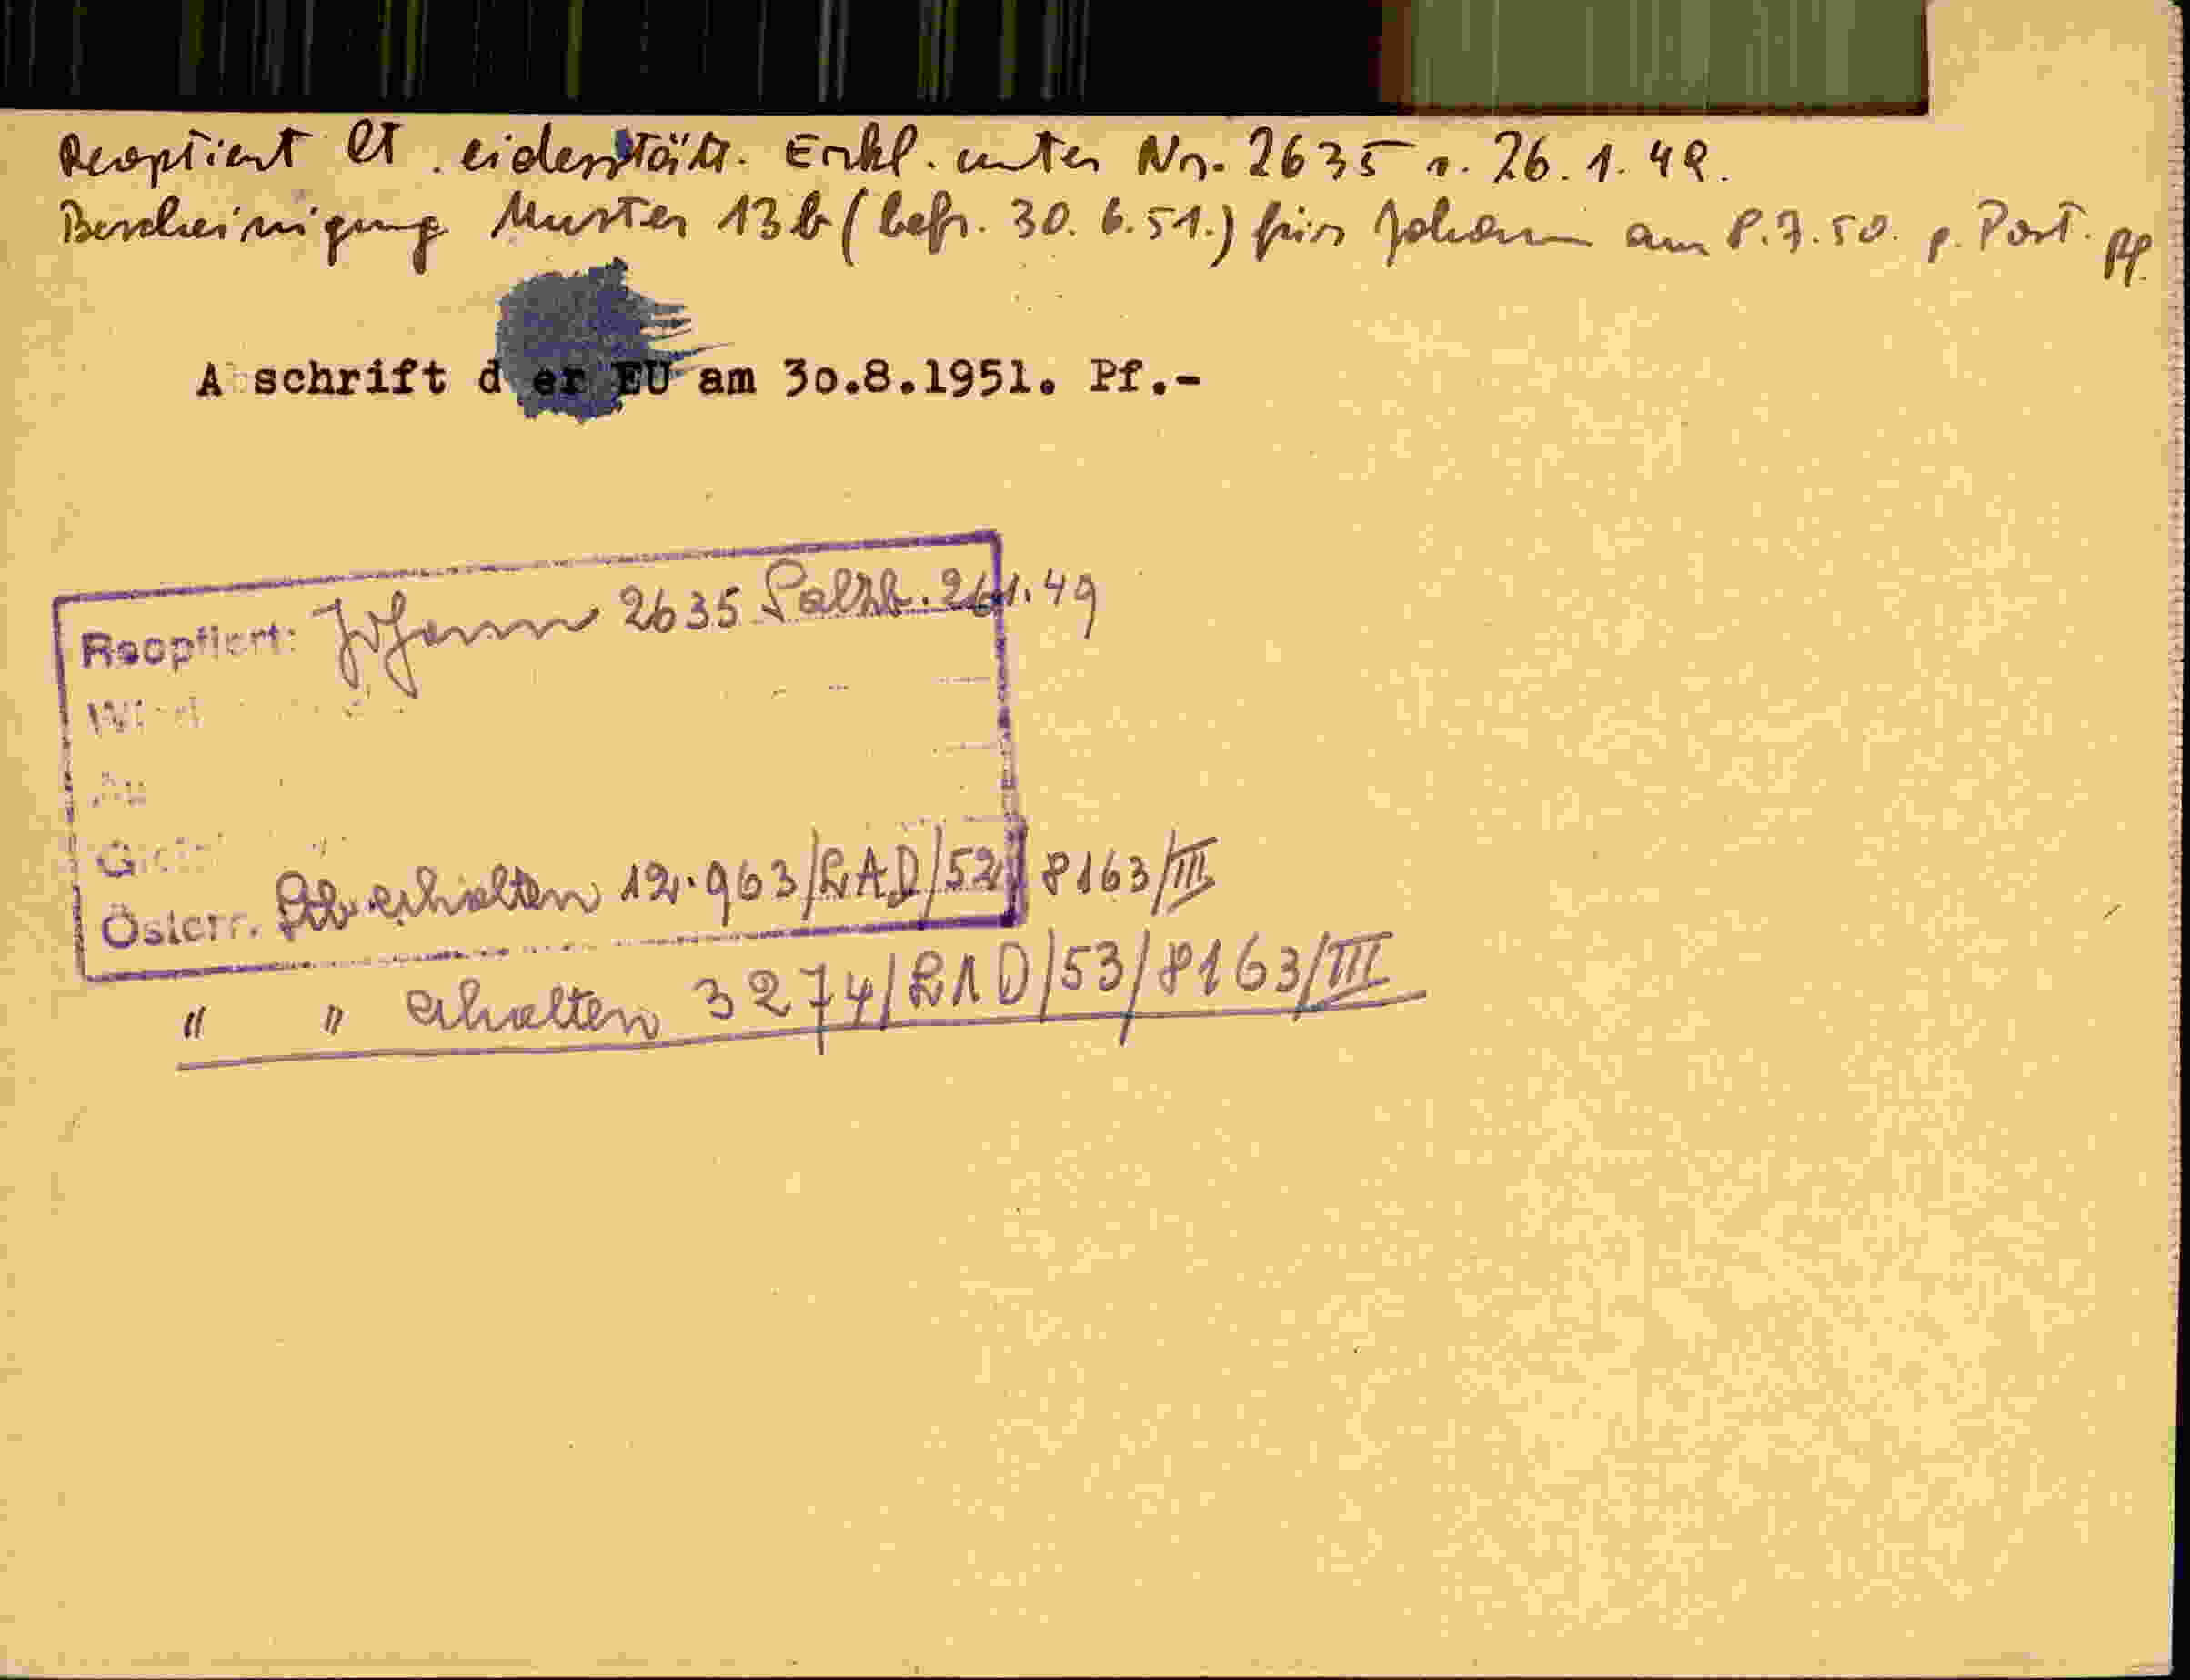 Reoptiert lt. eidesstätt. Erkl. unter Nr. 2635 v. 26.1.49.
Bescheinigung Muster 13b (befr. 30.6.51.) für Johann am 8.7.50. p. Post. Pf.
A schrift d er EU am 30.8.1951. Pf.-
Reoptiert: Johann 2635 Salzb. 26.1.49
Österr. Stb. erhalten 12.963/LAD/52/8163/III
" " erhalten 3274/LAD/53/8163/III